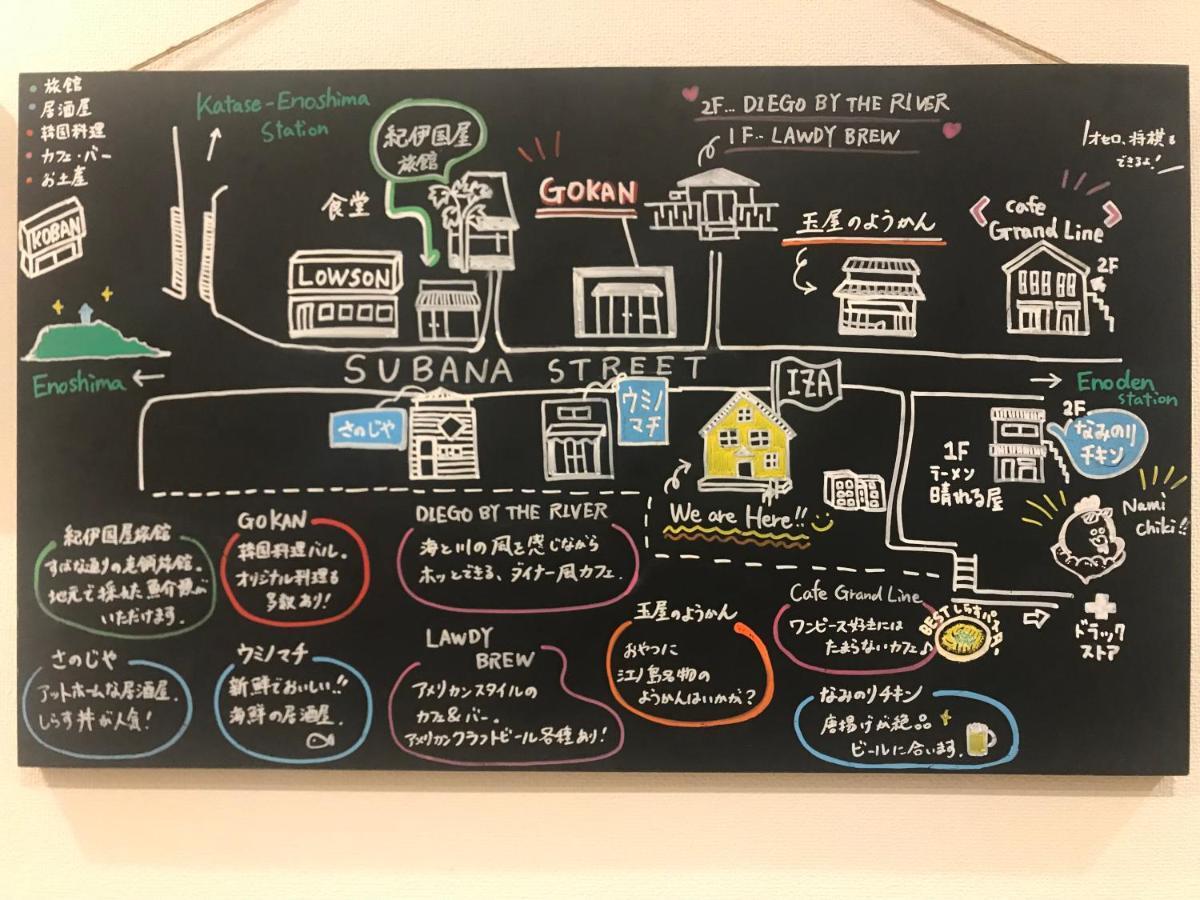 旅館
居酒屋
韓国料理
カフェ・バー
お土産
KOBAN
Katase-Enoshima
Station
紀伊国屋
旅館
食堂
LOWSON
GOKAN
2F... DIEGO BY THE RIVER
1F... LAWDY BREW
玉屋のようかん
オセロ、将棋も
できるよ!
cafe
Grand Line
2F
SUBANA STREET
Enoshima ←
→ Enoden
station
さのじや
ウミノ
マチ
IZA
We are Here!!
2F
なみのり
チキン
1F
ラーメン
晴れる屋
Nami
chiki!!
ドラック
ストア
紀伊国屋旅館
すばな通りの老舗旅館。
地元で採れた魚介類が
いただけます。
GOKAN
韓国料理バル。
オリジナル料理も
多数あり!
DIEGO BY THE RIVER
海と川の風を感じながら
ホッとできる、ダイナー風カフェ.
さのじや
アットホームな居酒屋.
しらす丼が人気!
ウミノマチ
新鮮でおいしい!!
海鮮の居酒屋.
LAWDY
BREW
アメリカンスタイルの
カフェ&バー。
アメリカンクラフトビール各種あり!
玉屋のようかん
おやつに
江ノ島名物の
ようかんはいかが?
Cafe Grand Line
ワンピース好きには
たまらないカフェ♪
BESTしらすパスタ!
なみのりチキン
唐揚げが絶品
ビールに合います.